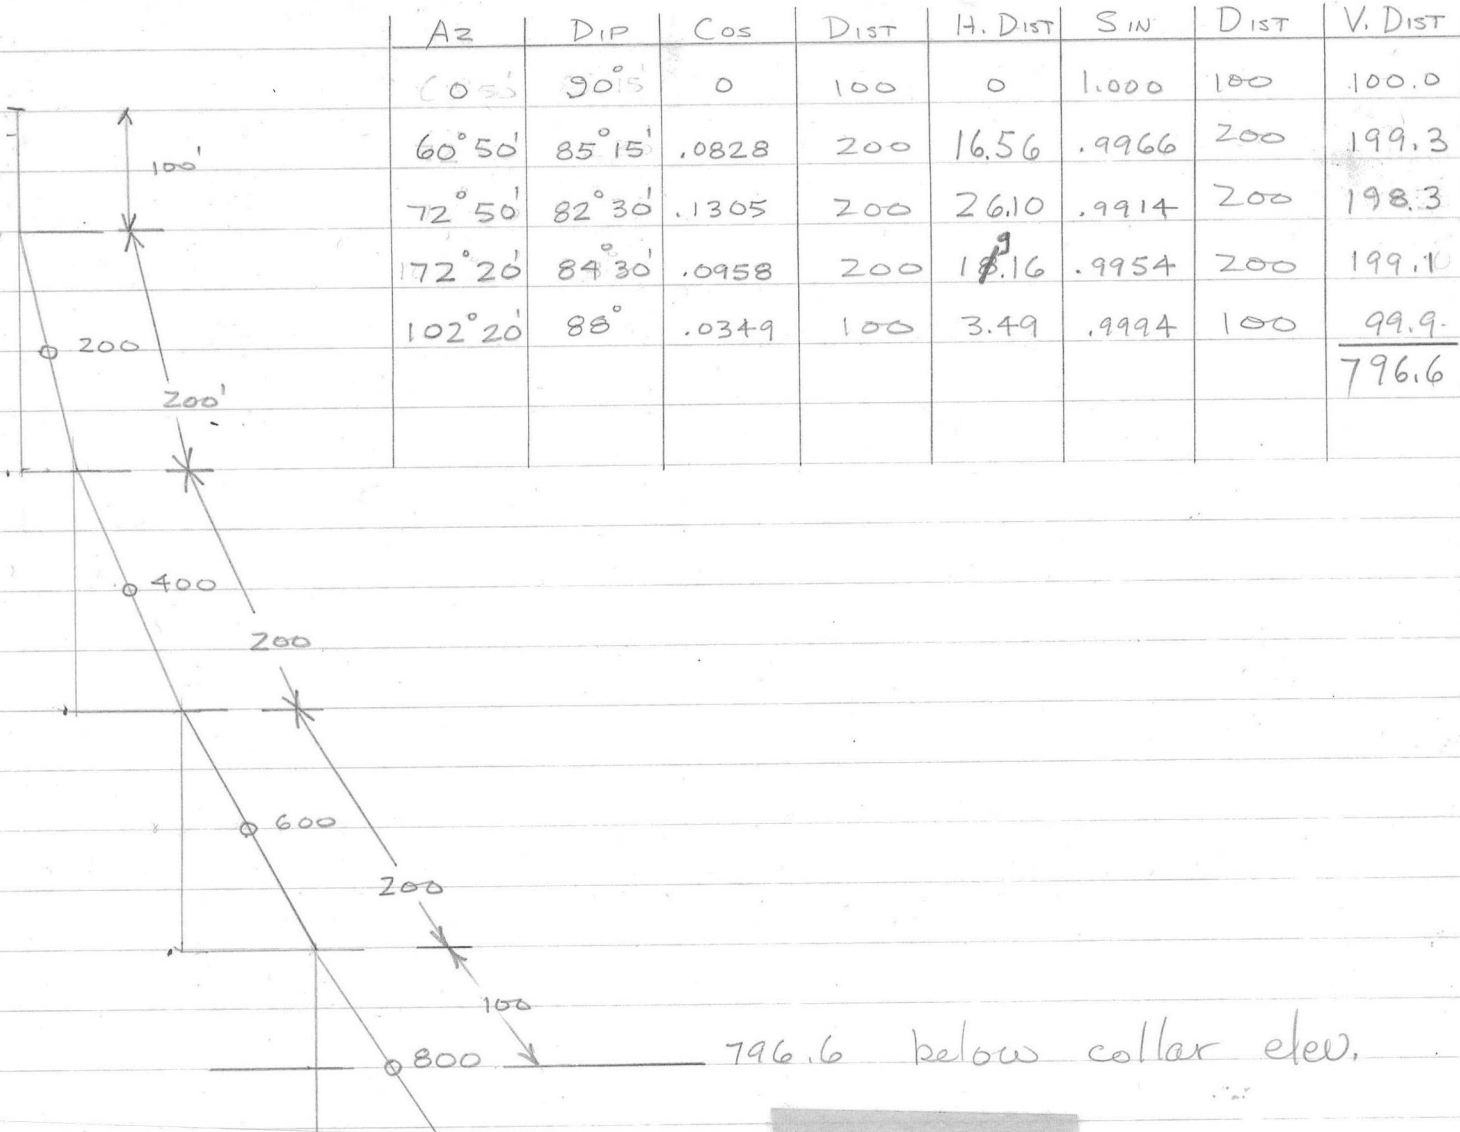 Az DIP COS DIST H. DIST SIN DIST V. DIST
0 90° 0 100 0 1.000 100 100.0
60°50' 85°15' .0828 200 16.56 .9966 200 199.3
100'
72°50' 82°30' .1305 200 26.10 .9914 200 198.3
172°20' 84°30' .0958 200 19.16 .9954 200 199.1
102°20' 88° .0349 100 3.49 .9994 100 99.9
200
796.6
200'
400
200
600
200
100
800
796.6 below collar elev.